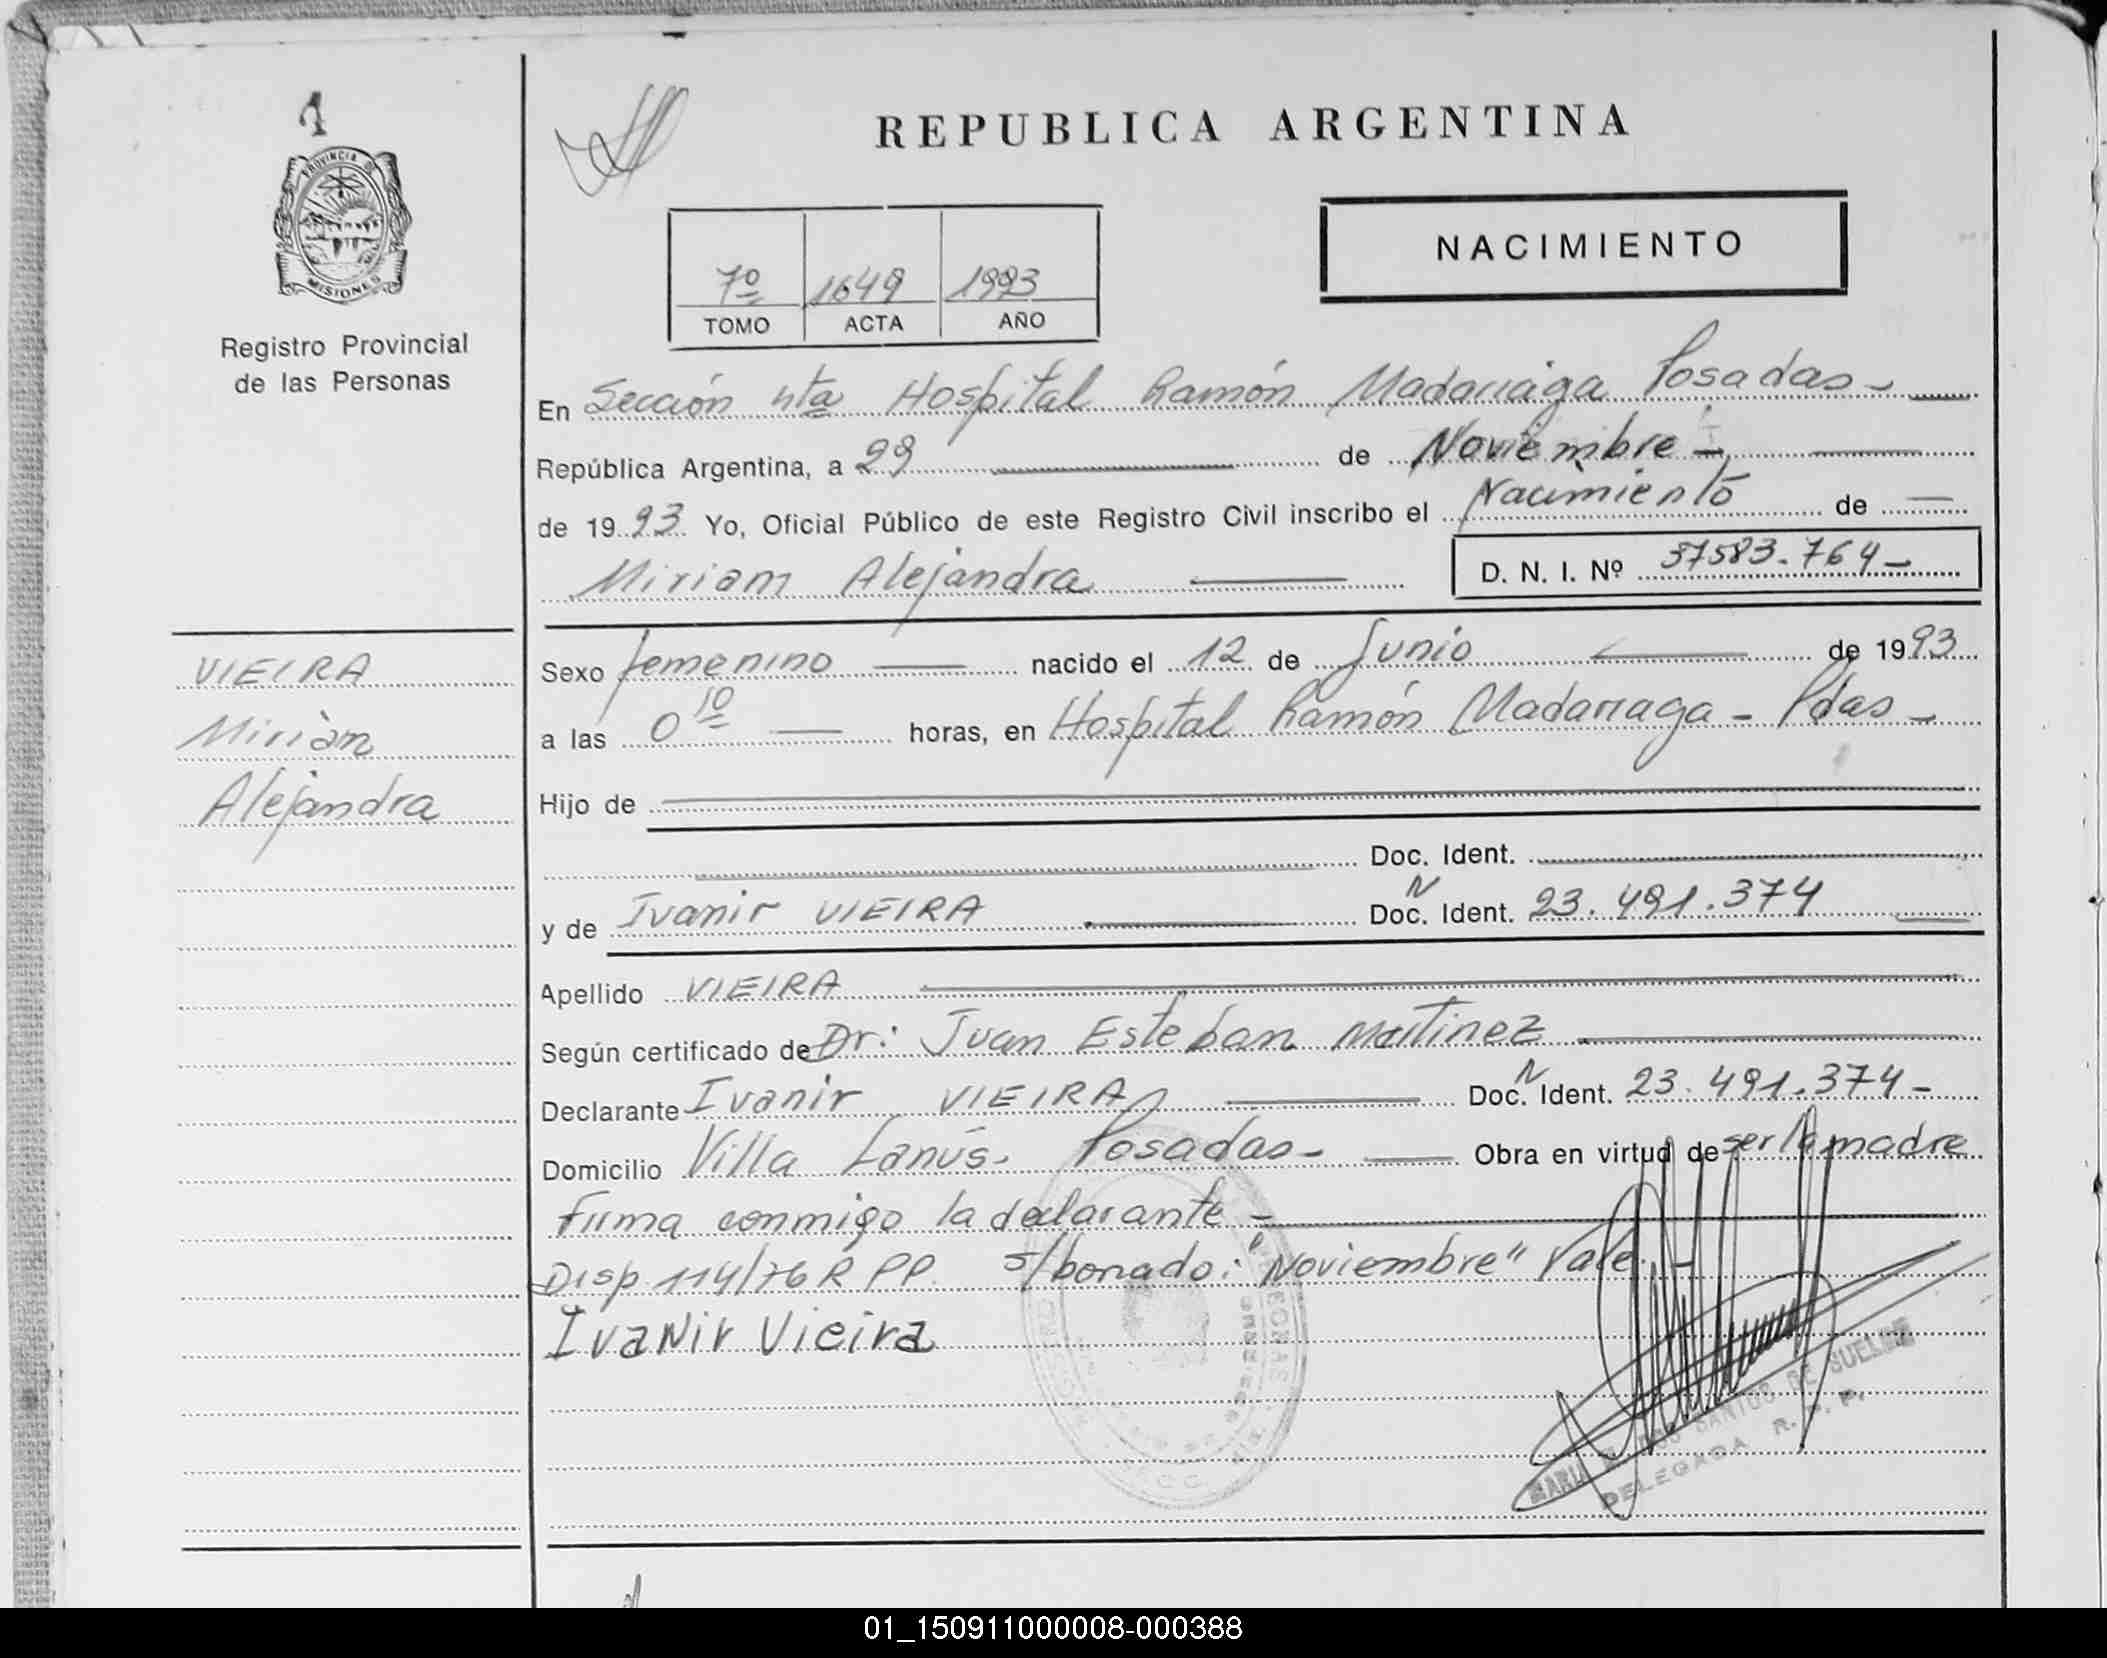 1
PROVINCIA D
MISIONES
Registro Provincial
de las Personas
VIEIRA
Miriam
Alejandra
REPUBLICA ARGENTINA
NACIMIENTO
7º 1649 1993
TOMO ACTA AÑO
En Sección 4ta Hospital Ramón Madarriaga Posadas-
República Argentina, a 29 de Noviembre-
de 1993 Yo, Oficial Público de este Registro Civil inscribo el Nacimiento de
Miriam Alejandra D. N. I. Nº 37583.764-
Sexo femenino nacido el 12 de Junio de 1993
a las 0 10 horas, en Hospital Ramón Madarriaga - Pdas-
Hijo de
Doc. Ident.
y de Ivanir VIEIRA Doc. N Ident. 23.491.374
Apellido VIEIRA
Según certificado de Dr: Juan Esteban Martinez
Declarante Ivanir VIEIRA Doc. N Ident. 23.491.374-
Domicilio Villa Lanús. Posadas- Obra en virtud de ser la madre
Firma conmigo la declarante-
Disp 114/76 R PP. s/borrado: "Noviembre" Vale.-
IvaNir Vieira
DOS SANTOS DE
DELEGADA R. P. P.
01_150911000008-000388